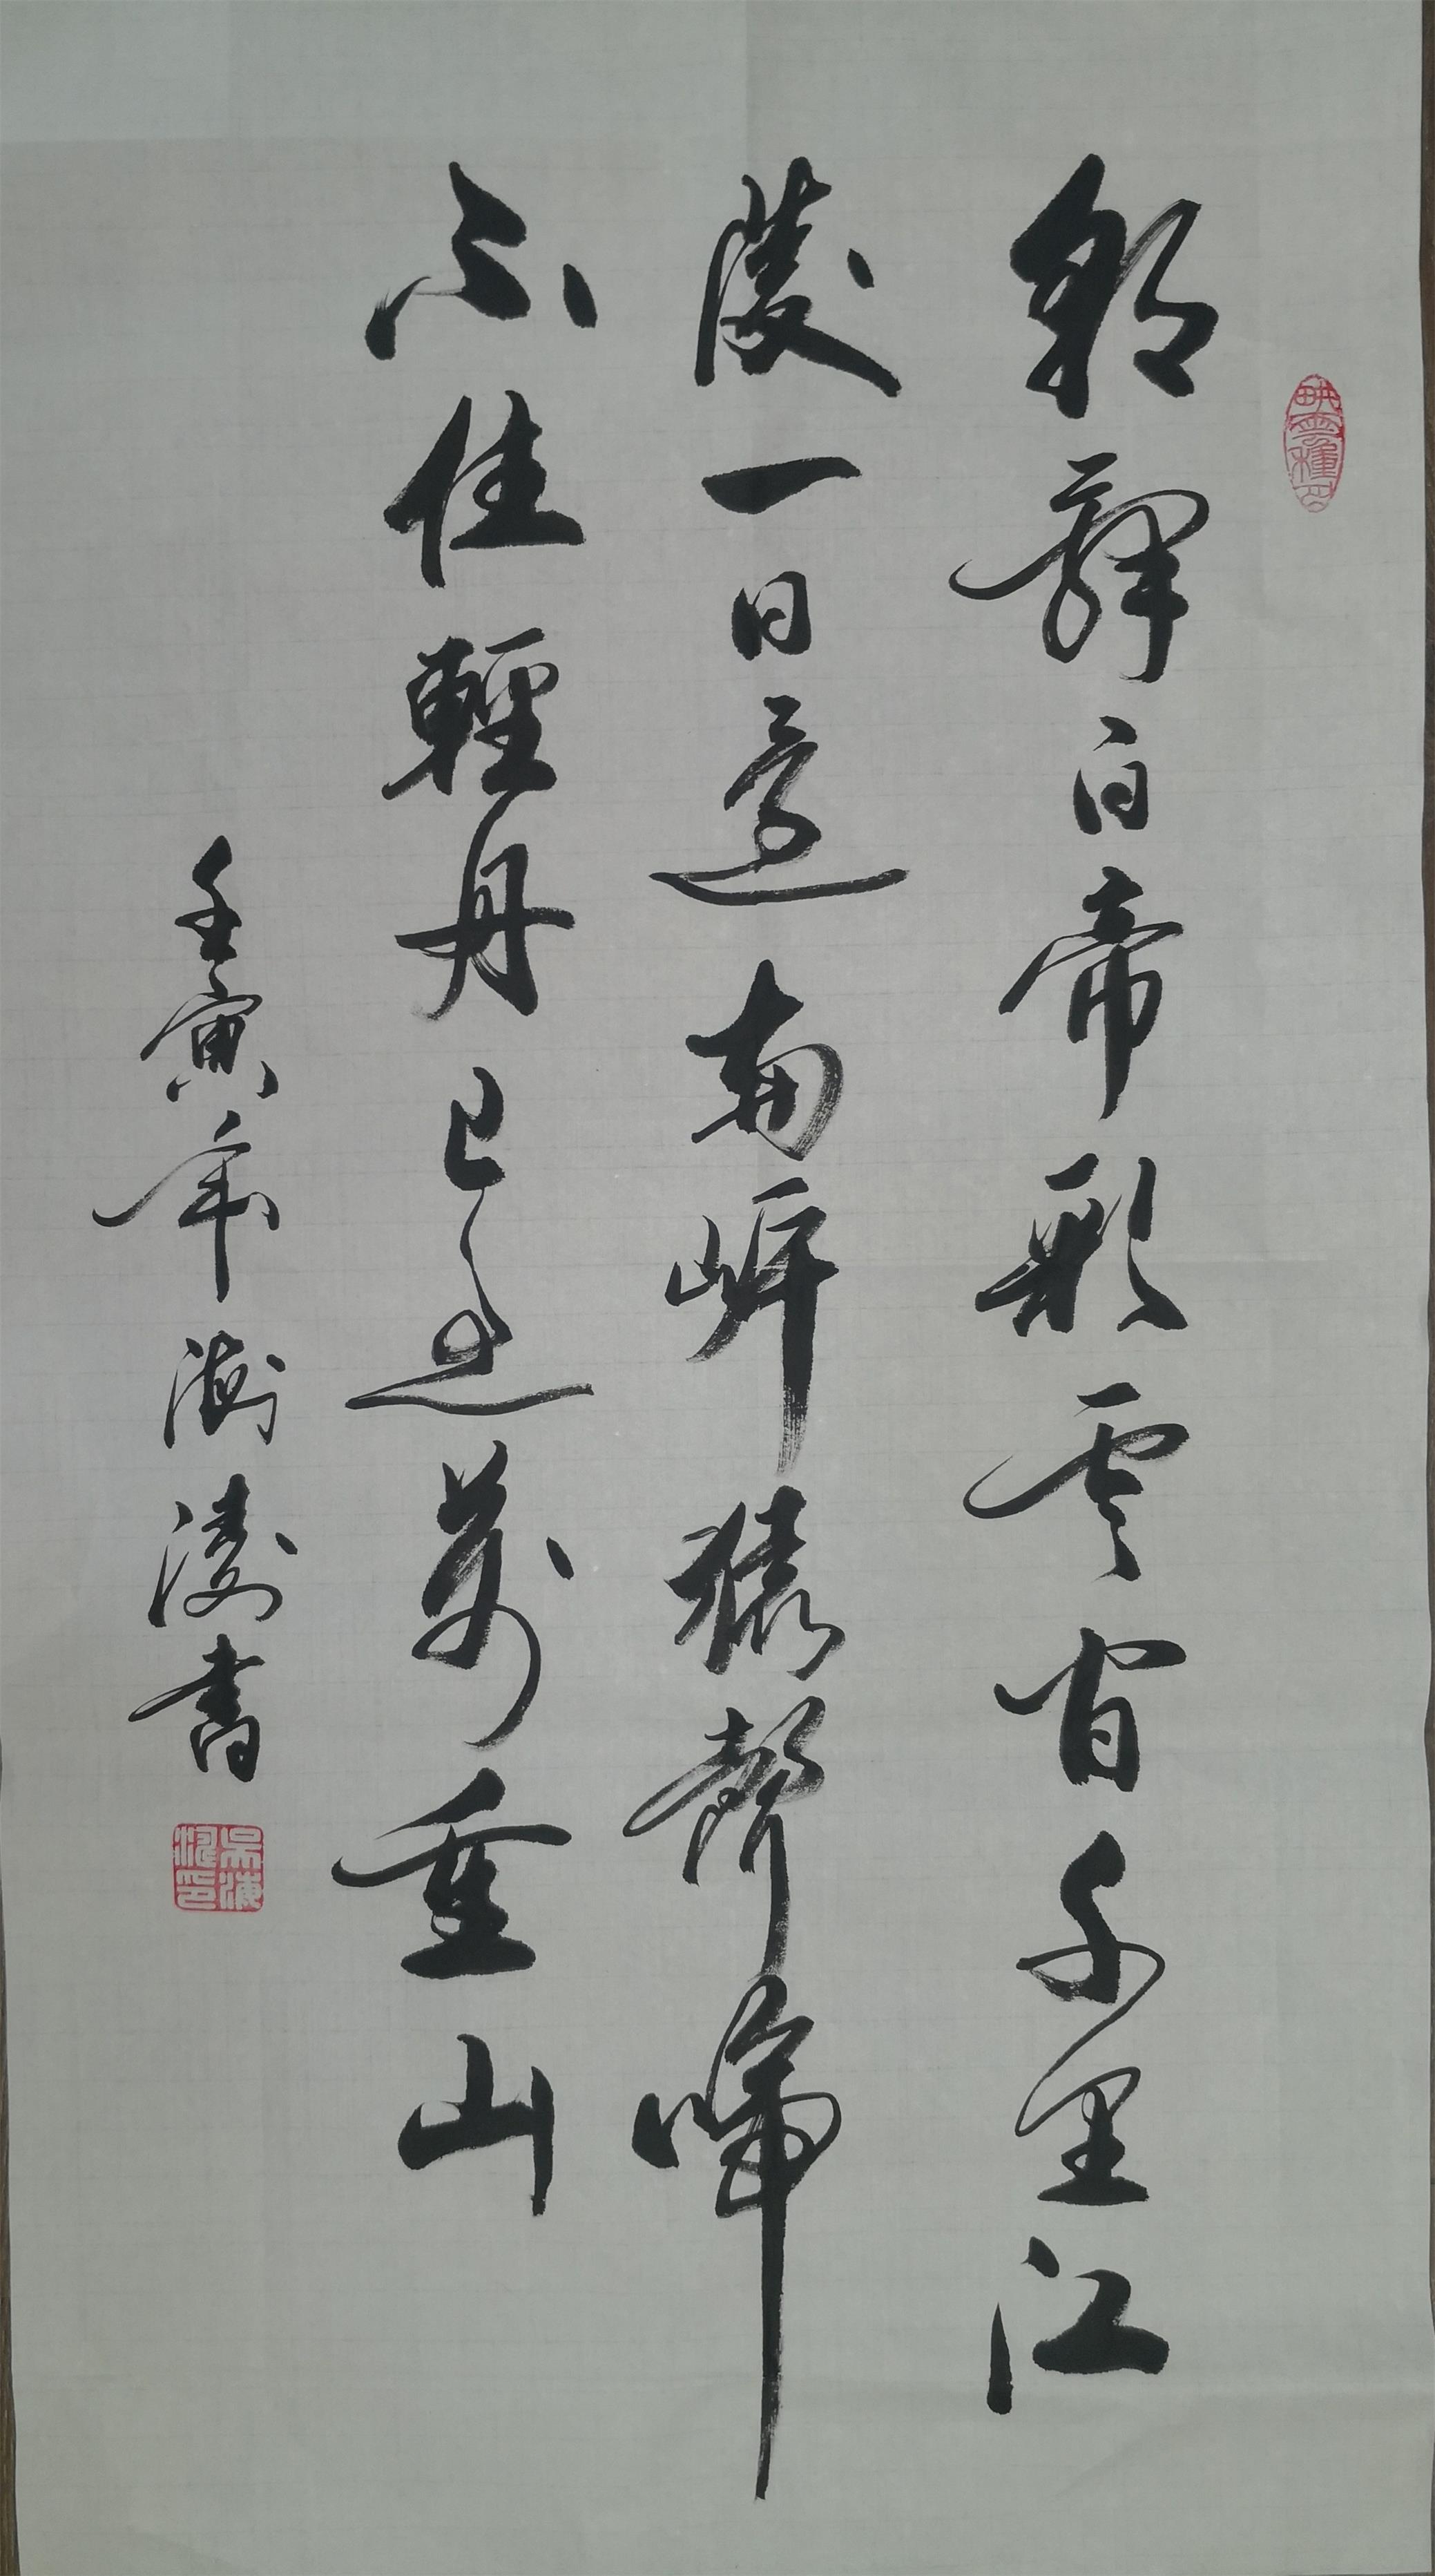 畊雲種月
朝辭白帝彩雲間千里江
陵一日還兩岸猿聲啼
不住輕舟已過萬重山
壬寅年書